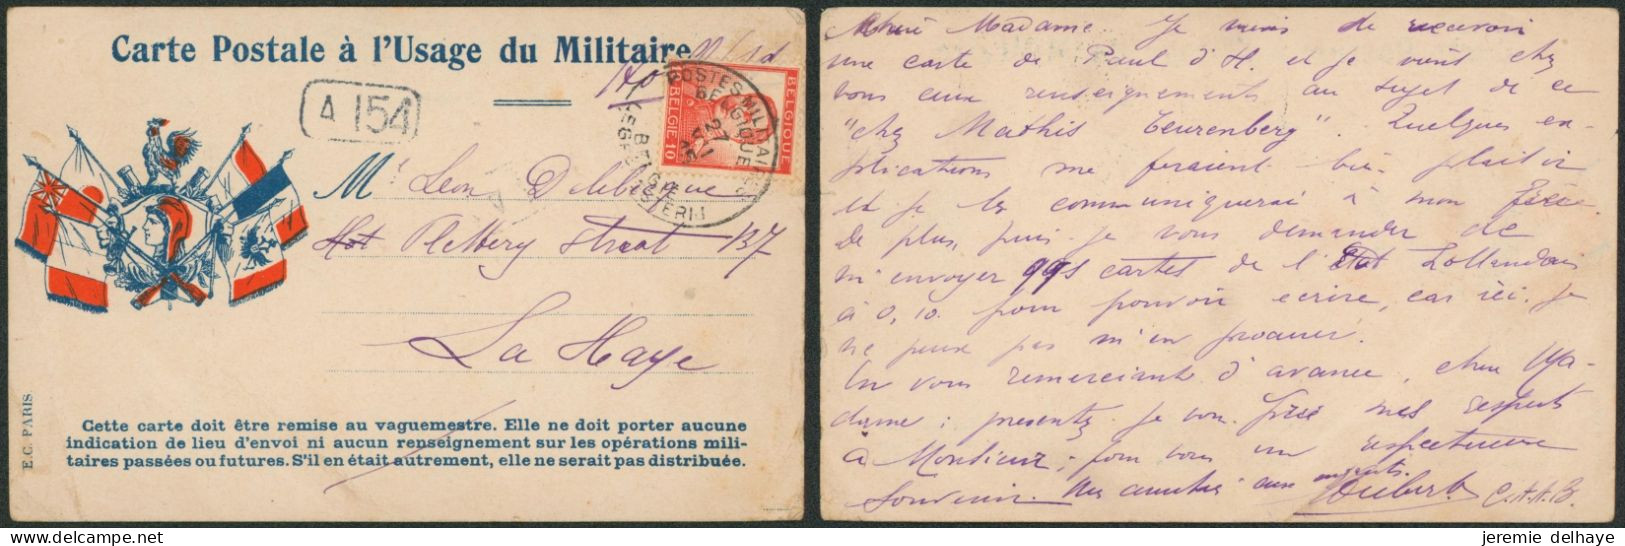 Carte Postale à l'Usage du Militaire
A 154
BELGIQUE
BELGIË 10
POSTES MILITAIRES
BELGIQUE
27
BELGIE
LEGER
POSTERIJ
Mr Leon Delebecque
Plettery Straat 137
La Haye
Cette carte doit être remise au vaguemestre. Elle ne doit porter aucune
indication de lieu d'envoi ni aucun renseignement sur les opérations mili-
taires passées ou futures. S'il en était autrement, elle ne serait pas distribuée.
E.C. PARIS
Chère Madame. Je viens de recevoir
une carte de Paul d'H. et je viens chez
vous aux renseignements au sujet de ce
"chez Mathis Teurenberg". Quelques ex-
plications me feraient bien plaisir
et je les communiquerai à mon frère.
De plus, puis-je vous demander de
m'envoyer qqs cartes de l'Etat Hollandais
à 0,10 pour pouvoir ecrire, car ici je
ne peux pas m'en procurer.
En vous remerciant d'avance, chère Ma-
dame; presentez je vous prie mes respects
à Monsieur; pour vous un respectueux
Souvenir. Mes amitiés aux
Hubert C.A.A.B.
jeremie delhaye